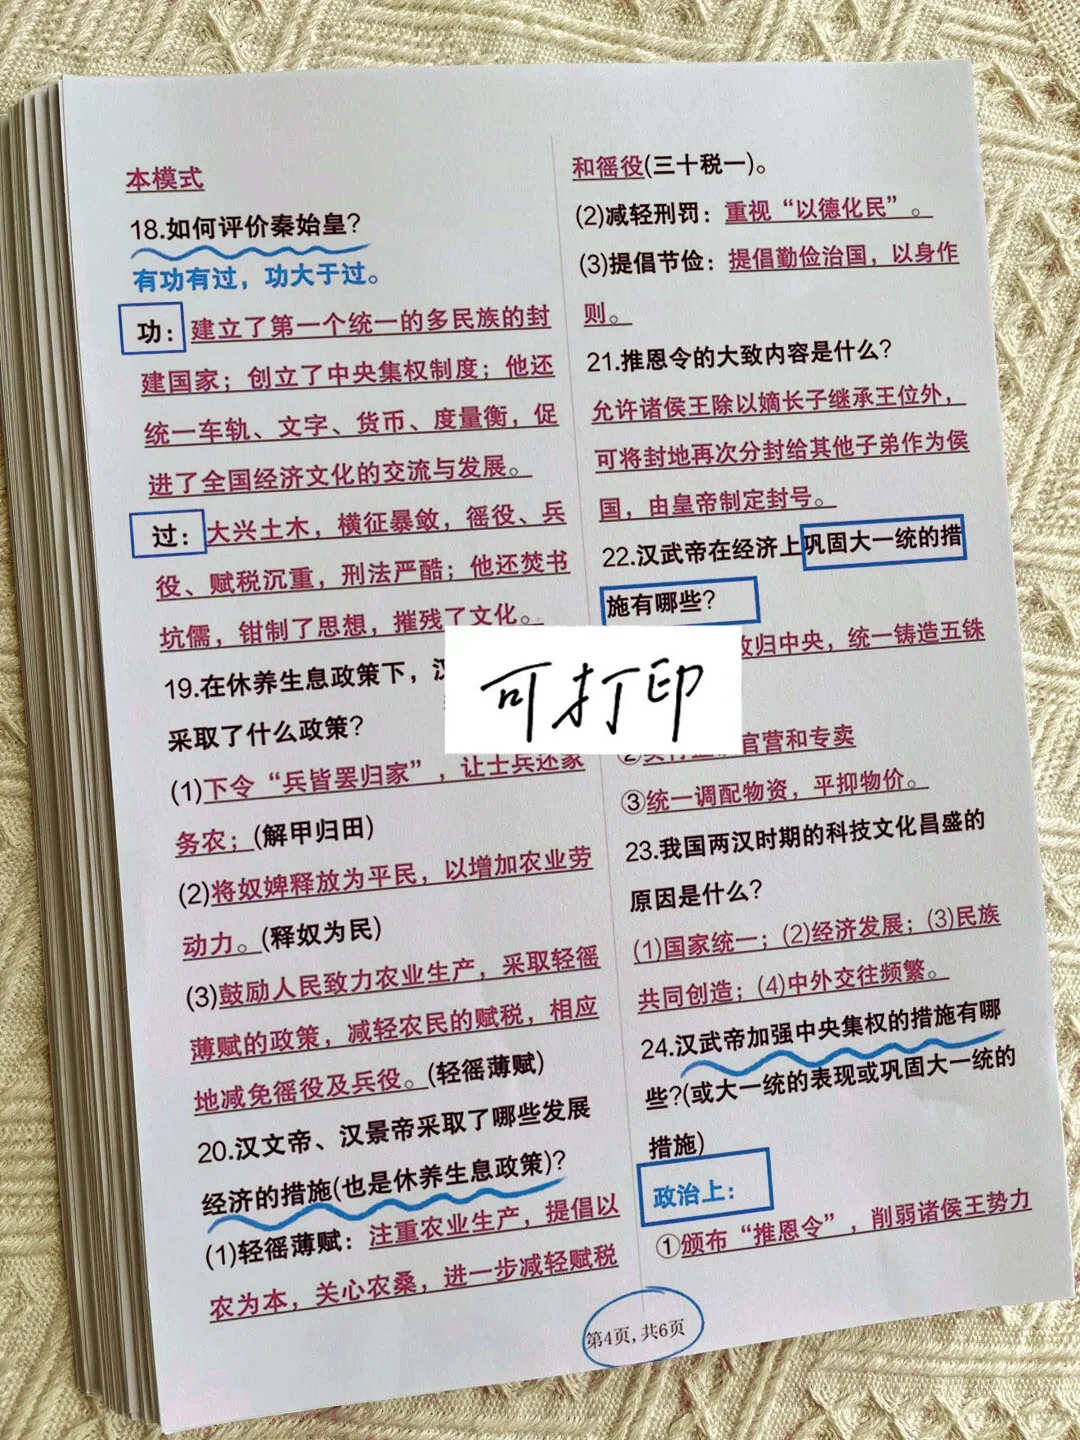 本模式
18.如何评价秦始皇?
有功有过，功大于过。
功：建立了第一个统一的多民族的封
建国家；创立了中央集权制度；他还
统一车轨、文字、货币、度量衡，促
进了全国经济文化的交流与发展。
过：大兴土木，横征暴敛，徭役、兵
役、赋税沉重，刑法严酷；他还焚书
坑儒，钳制了思想，摧残了文化。
19.在休养生息政策下，
采取了什么政策?
(1)下令“兵皆罢归家”，让士兵还家
务农；(解甲归田)
(2)将奴婢释放为平民，以增加农业劳
动力。(释奴为民)
(3)鼓励人民致力农业生产，采取轻徭
薄赋的政策，减轻农民的赋税，相应
地减免徭役及兵役。(轻徭薄赋)
20.汉文帝、汉景帝采取了哪些发展
经济的措施(也是休养生息政策)?
(1)轻徭薄赋：注重农业生产，提倡以
农为本，关心农桑，进一步减轻赋税
和徭役(三十税一)。
(2)减轻刑罚：重视“以德化民”。
(3)提倡节俭：提倡勤俭治国，以身作
则。
21.推恩令的大致内容是什么?
允许诸侯王除以嫡长子继承王位外，
可将封地再次分封给其他子弟作为侯
国，由皇帝制定封号。
22.汉武帝在经济上巩固大一统的措
施有哪些?
归中央，统一铸造五铢
可打印
官营和专卖
③统一调配物资，平抑物价。
23.我国两汉时期的科技文化昌盛的
原因是什么?
(1)国家统一；(2)经济发展；(3)民族
共同创造；(4)中外交往频繁。
24.汉武帝加强中央集权的措施有哪
些?(或大一统的表现或巩固大一统的
措施)
政治上：
①颁布“推恩令”，削弱诸侯王势力
第4页，共6页